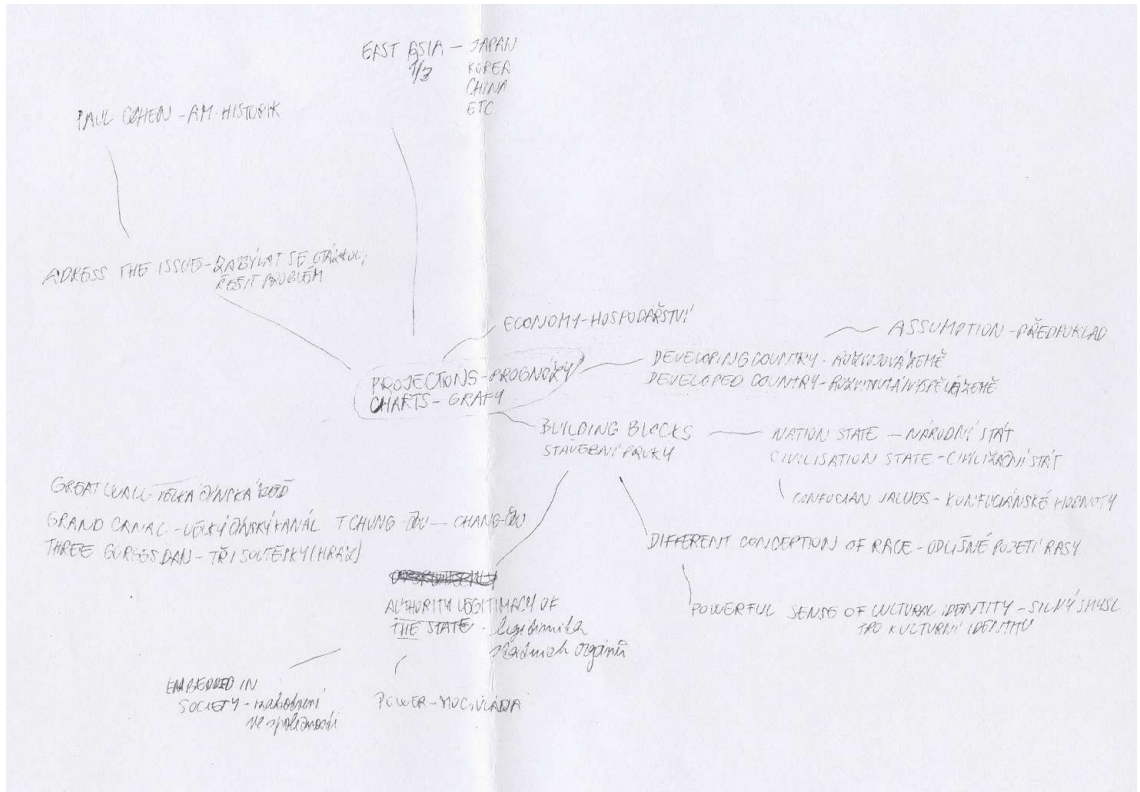 EAST ASIA – JAPAN
1/3 KOREA
CHINA
ETC
PAUL COHEN – AM. HISTORIK
ADRESS THE ISSUE – ZABÝVAT SE OTÁZKOU,
ŘEŠIT PROBLÉM
ECONOMY – HOSPODÁŘSTVÍ
ASSUMPTION – PŘEDPOKLAD
PROJECTIONS – PROGNÓZY
CHARTS – GRAFY
DEVELOPING COUNTRY – ROZVOJOVÁ ZEMĚ
DEVELOPED COUNTRY – ROZVINUTÁ VYSPĚLÁ ZEMĚ
BUILDING BLOCKS
STAVEBNÍ PRVKY
NATION STATE – NÁRODNÍ STÁT
CIVILISATION STATE – CIVILIZAČNÍ STÁT
CONFUCIAN VALUES – KONFUCIÁNSKÉ HODNOTY
GREAT WALL – VELKÁ ČÍNSKÁ ZEĎ
GRAND CANAL – VELKÝ ČÍNSKÝ KANÁL TCHUNG-ČOU – CHANG-ČOU
THREE GORGES DAN – TŘI SOUTĚSKY (HRÁZ)
DIFFERENT CONCEPTION OF RACE – ODLIŠNÉ POJETÍ RASY
POWERFUL SENSE OF CULTURAL IDENTITY – SILNÝ SMYSL
PRO KULTURNÍ IDENTITU
AUTHORITY LEGITIMACY OF
THE STATE – legitimita
státních orgánů
EMBEDDED IN
SOCIETY – zakotvení
ve společnosti
POWER – MOC, VLÁDA